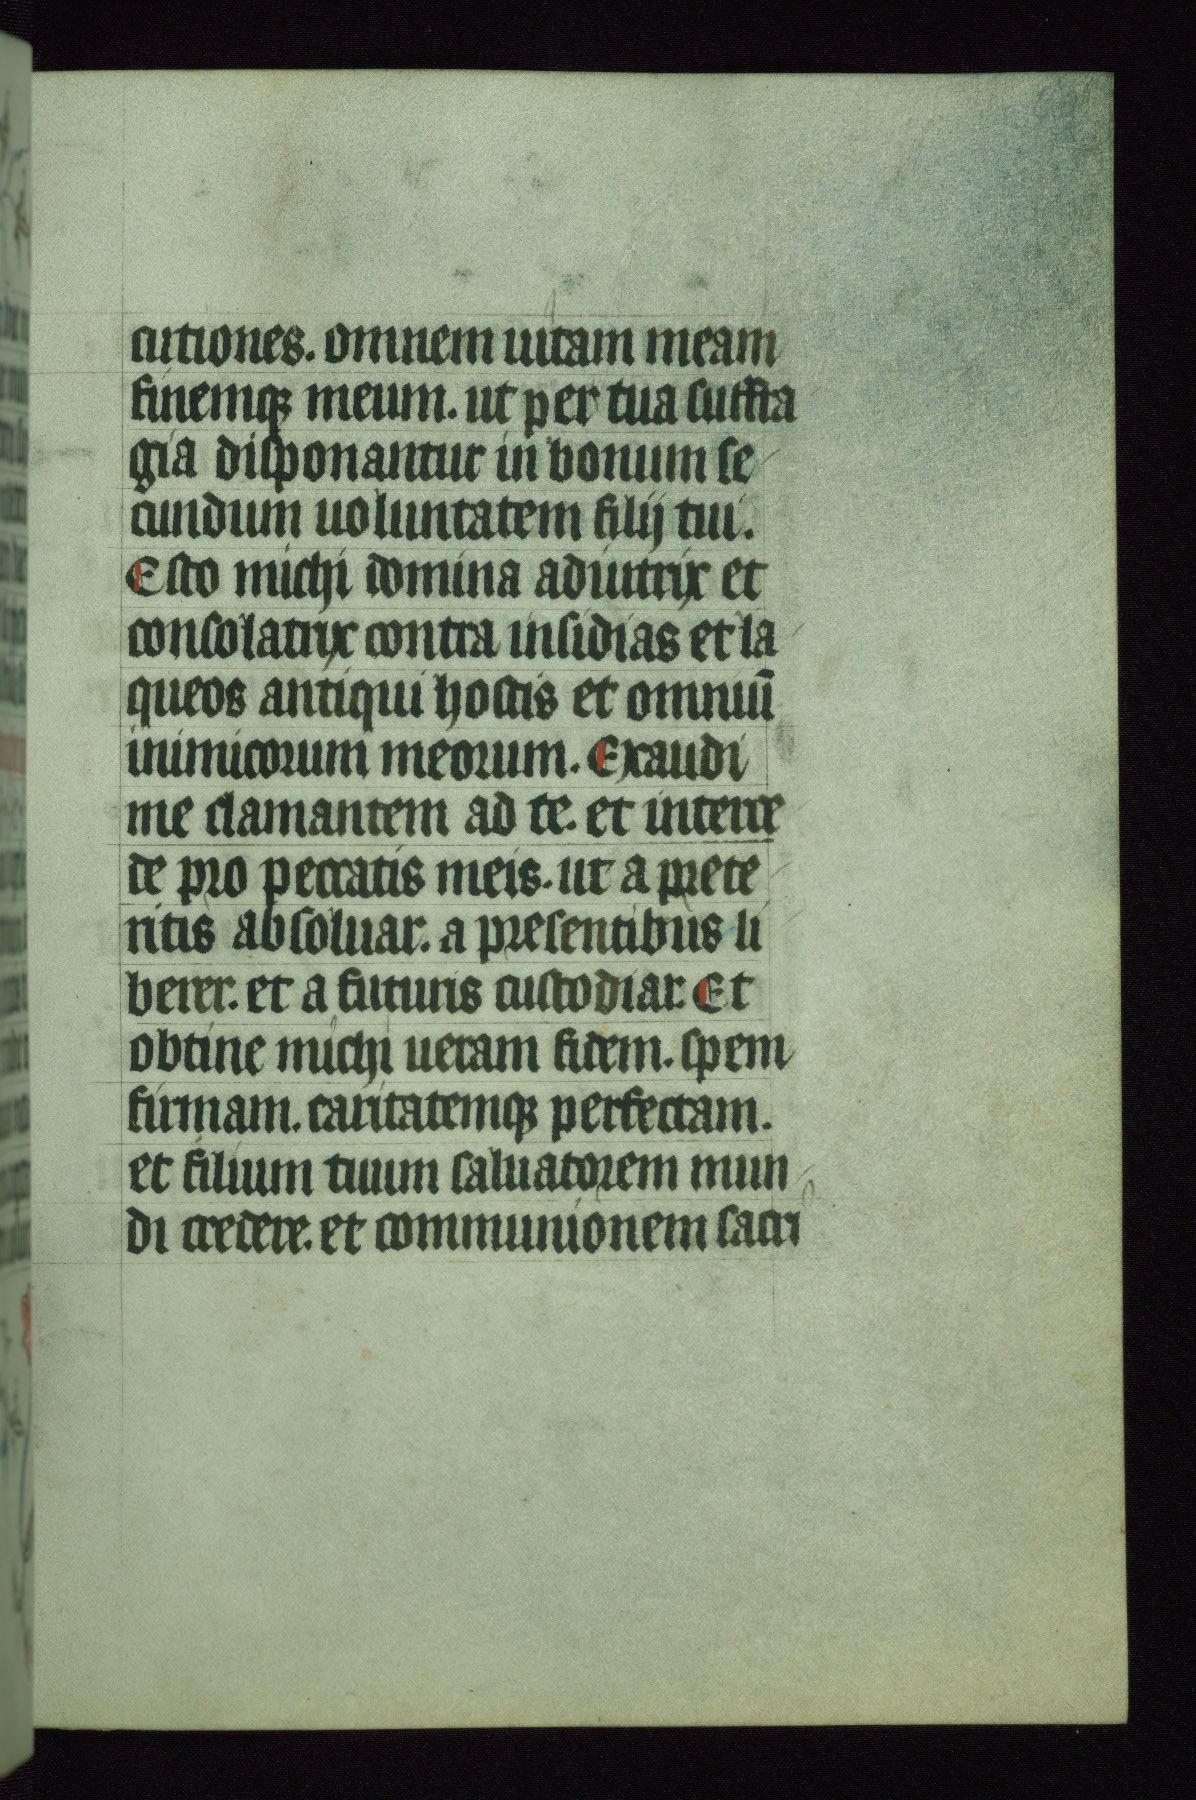 cutiones. omnem uitam meam
finemqꝫ meum. ut per tua suffra
gia disponantur in bonum se
cundum uoluntatem filij tui.
Esto michi domina adiutrix et
consolatrix contra insidias et la
queos antiqui hostis et omniū
inimicorum meorum. Exaudi
me clamantem ad te. et interce
de pro peccatis meis. ut a prete
ritis absoluar. a presentibus li
berer. et a futuris custodiar. Et
obtine michi ueram fidem. spem
firmam. caritatemqꝫ perfectam.
et filium tuum saluatorem mun
di credere. et communionem sacri